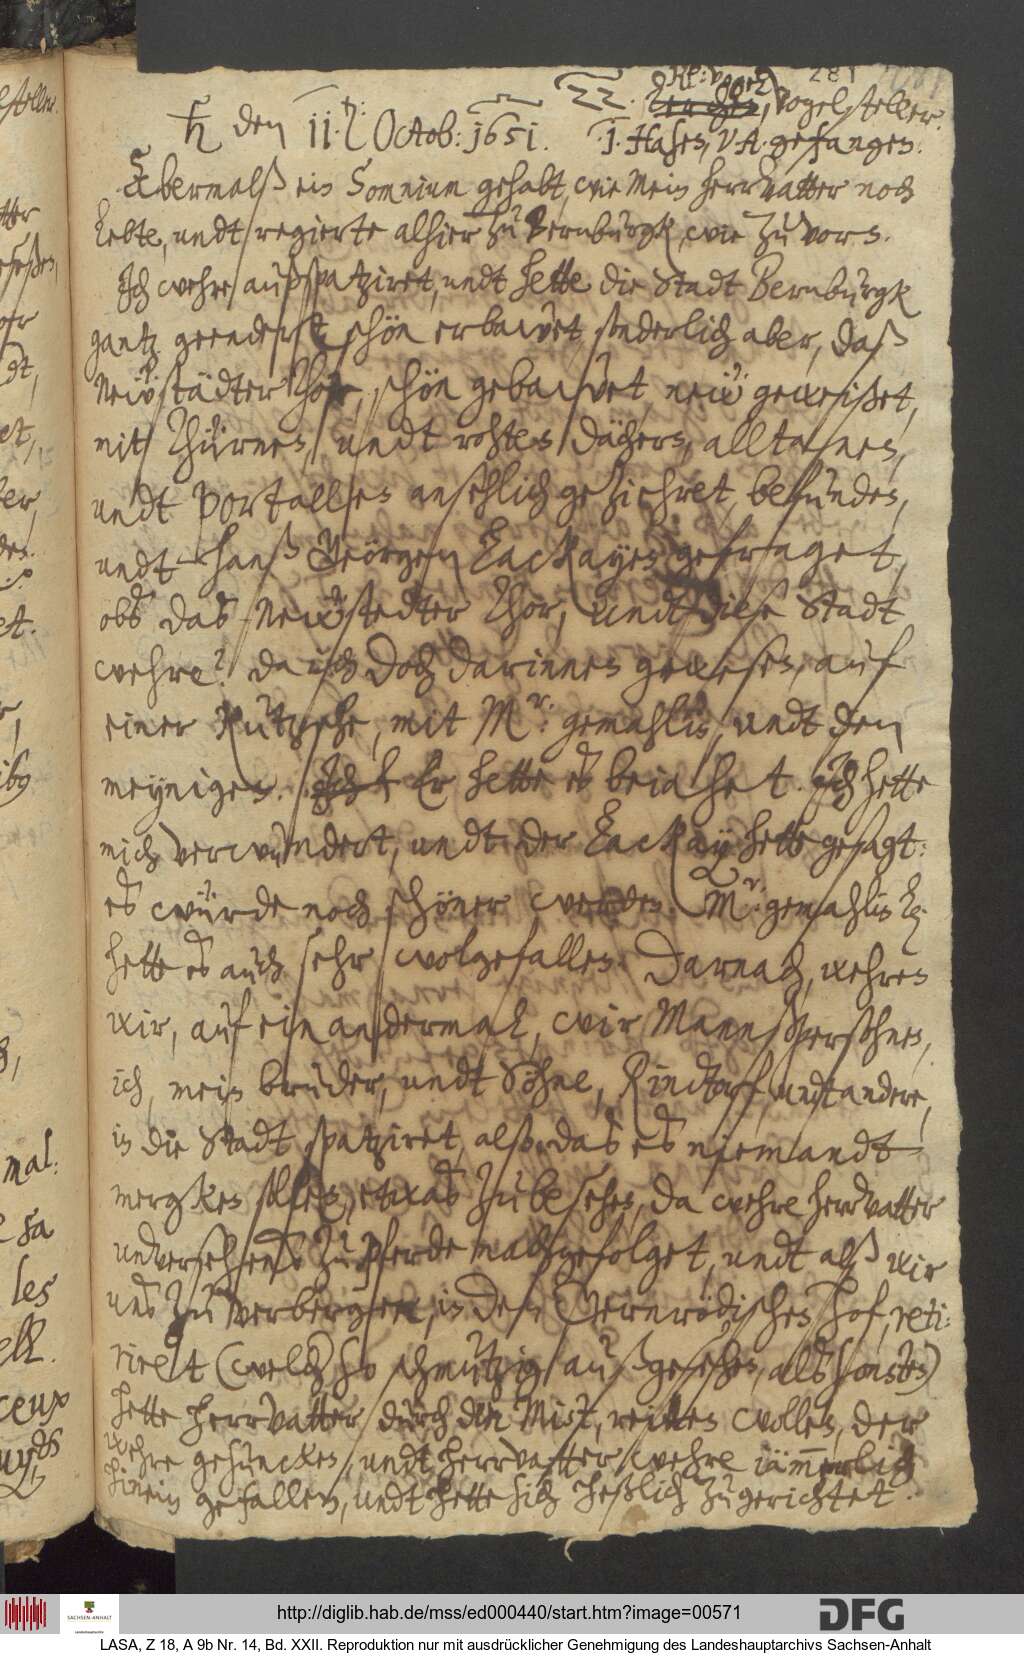 281
22. Kl: vögel, Vogelsteller.
♄ den 11. Octob: 1651. 1. Hasen, V A. gefangen.
Abermalß ein Somnium gehabt, wie mein herrvatter noch
lebte, undt regierte alhier zu Bernburgk, wie zu vorn.
Ich wehre außspatziret, undt hette die Stadt Bernburgk
gantz geendert, schön erbawet, sonderlich aber, daß
Newstädter Thor, schön gebawet, new geweißet,
mit Thürnen, undt rohten dächern, alltanen,
undt portallen ansehlich geziehret, befunden,
undt Hanß Geörgen Lackayen gefraget,
obs das Newstedter Thor, undt diese Stadt
wehre? da ich doch darinnen gewesen, auf
einer Kutzsche, mit Mr: gemahlin, undt den
meynigen. Er hette es beiahet. Ich hette
mich verwundert, undt der Lackay hette gesagt:
es würde noch schöner werden. Mr: gemahlin L:
hette es auch sehr wolgefallen. Darnach, wehren
wir, auf ein andermal, wir Mannßpersohnen,
ich, mein bruder, undt Söhne, Rindtorf, undt andere,
in die Stadt spatziret, also das es niemandt
mergken sollen, etwas zu besehen, da wehre herrvatter
unversehens zu pferde nachgefolget, undt alß wir
uns zu verbergen, in den Gernrödischen hof, reti-
rirt (welcher so schmutzig außgesehen, als sonsten)
hette herrvatter durch den Mist, reitten wollen, der
wehre gesuncken, undt herrvatter wehre iämmerlich
hinein gefallen, undt hette sich heßlich zugerichtet.
http://diglib.hab.de/mss/ed000440/start.htm?image=00571
SACHSEN-ANHALT
DFG
LASA, Z 18, A 9b Nr. 14, Bd. XXII. Reproduktion nur mit ausdrücklicher Genehmigung des Landeshauptarchivs Sachsen-Anhalt